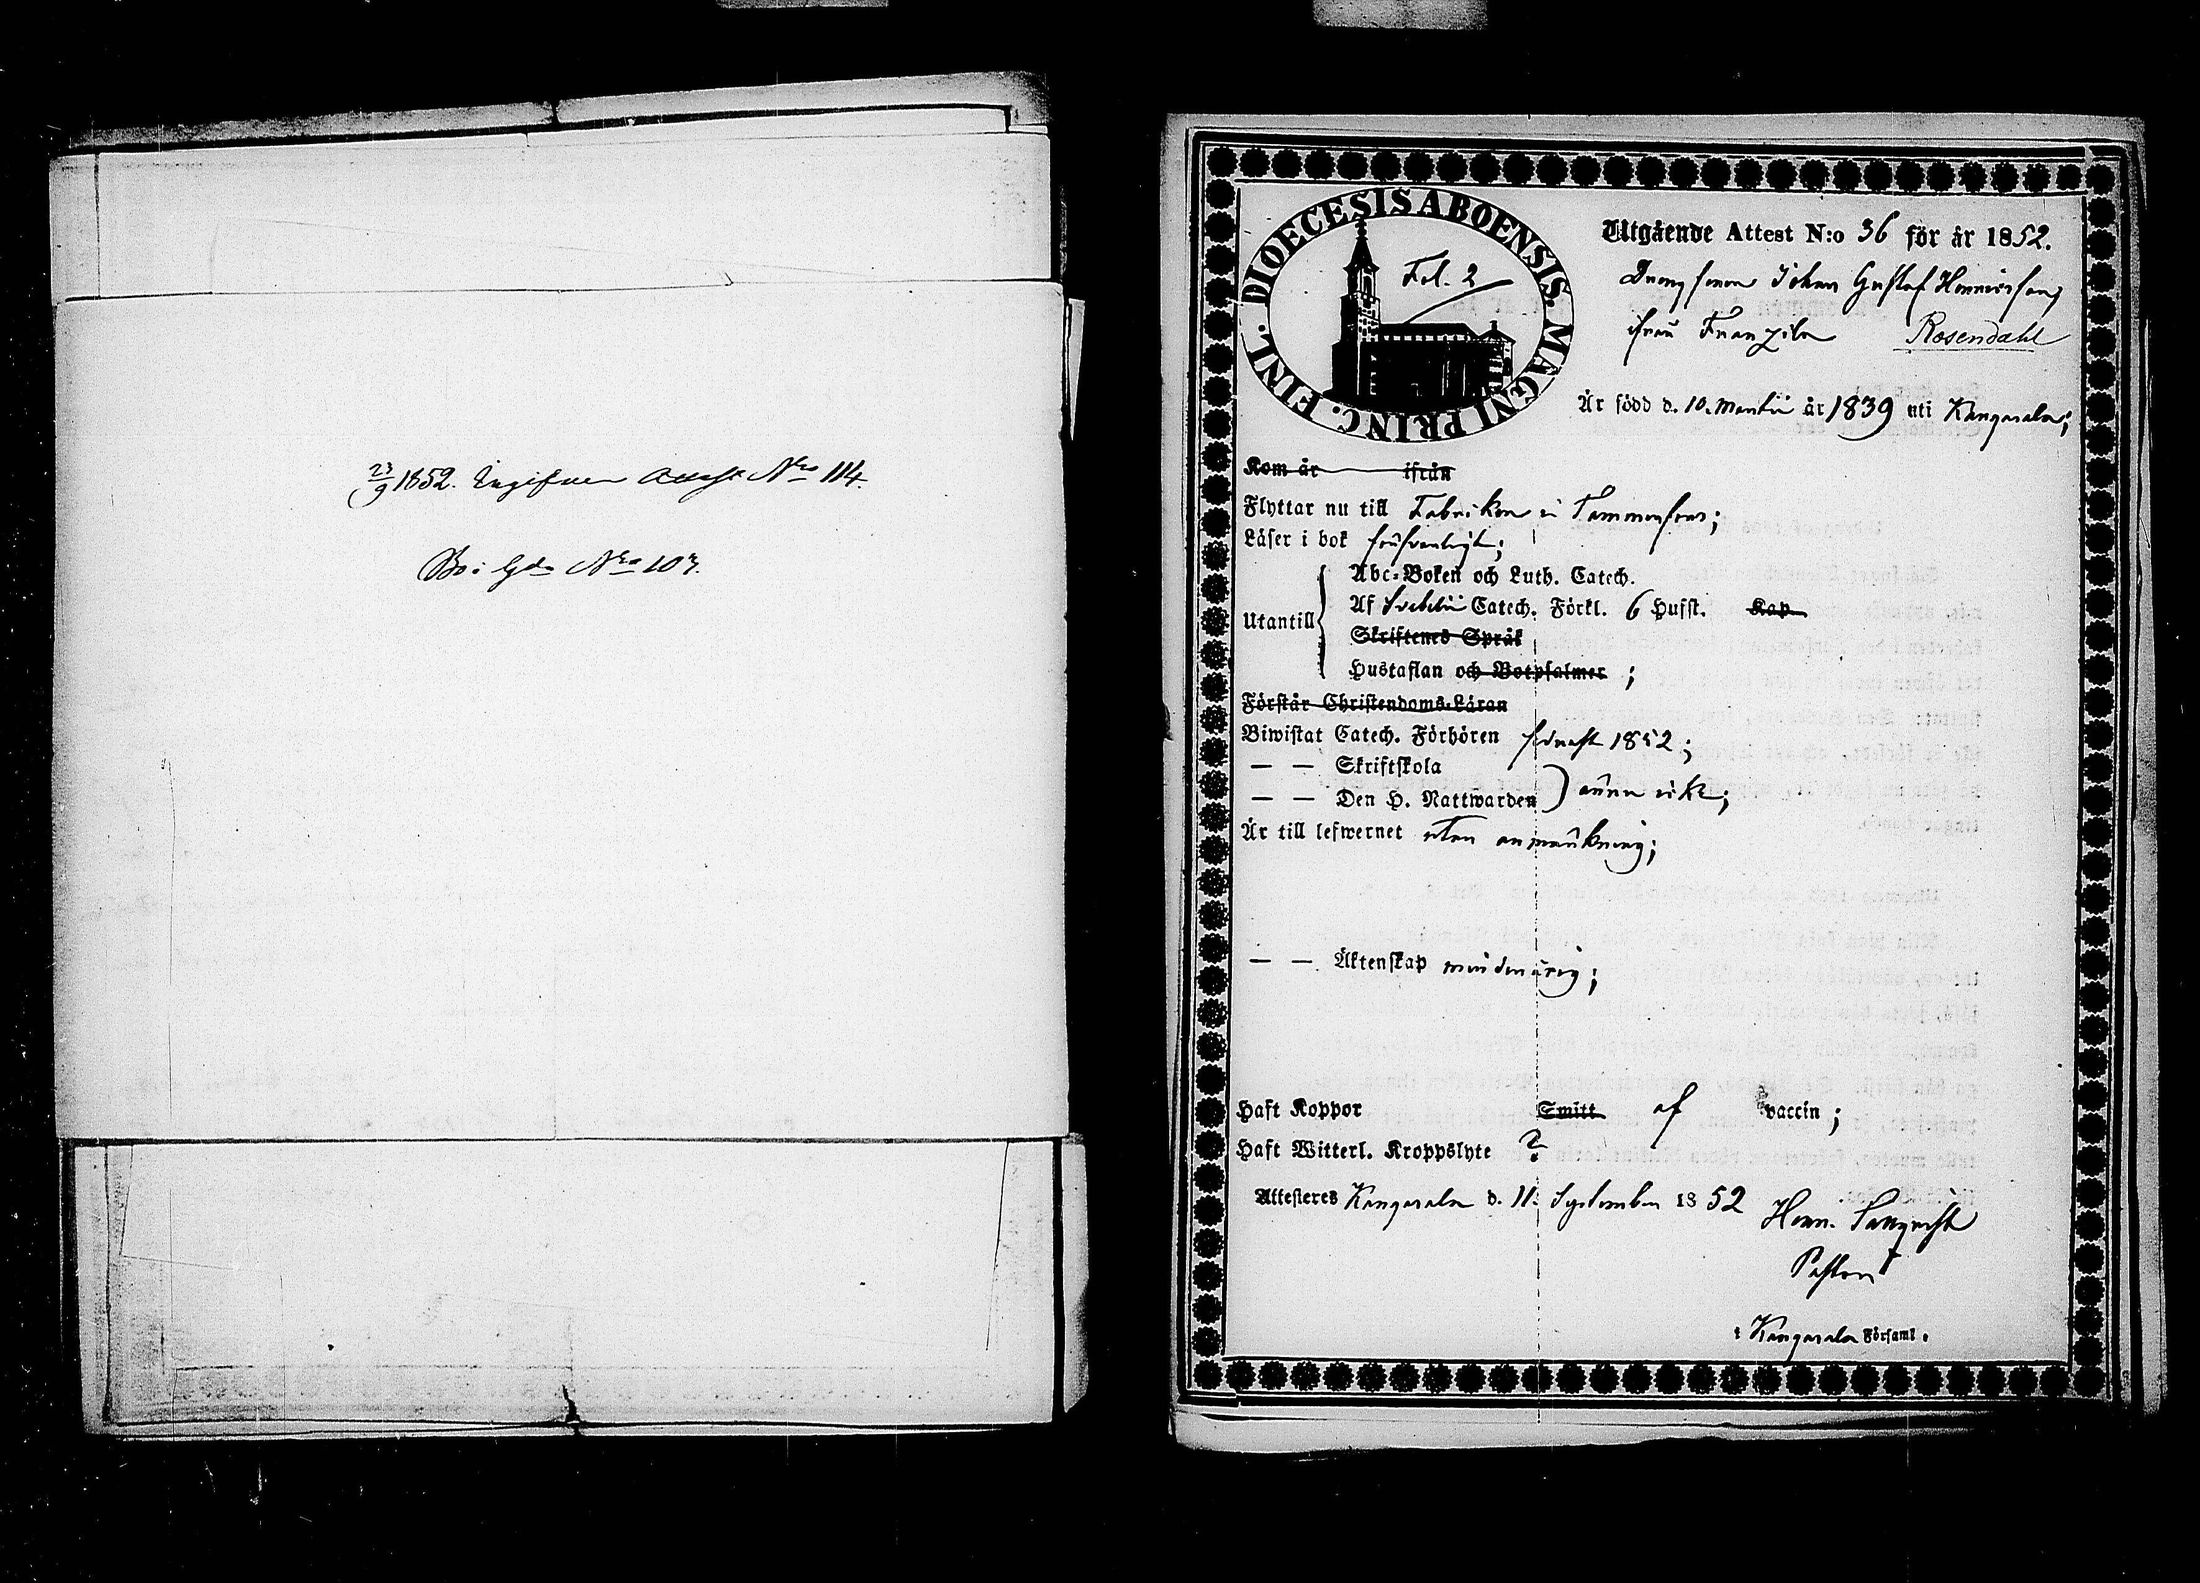 23/9 1852. Ingifven Attest No 114.
Bo i Gda No 107.
DIOECESIS ABOENSIS. MAGNI PRINC. FINL.
Fol. 2
Utgående Attest N:o 36 för år 1852.
Johan Gustaf Henricsson
ifrån Rosendahl
Är född d. 10. Martii år 1839 uti Kangasala;
Kom år ifrån
Flyttar nu till Fabriken i Tammerfors;
Läser i bok försvarligt;
Abc-Boken och Luth. Catech.
Utantill Af Svebelii Catech. Förkl. 6 Hufst. Kap
Skriftenes Språk
Hustaflan och Botpsalmer ;
Förstår Christendoms-Läran
Biwistat Catech. Förhören sednast 1852;
— — Skriftskola
— — Den H. Nattwarden ) ännu icke;
Är till lefwernet utan anmärkning;
— — Äktenskap minderårig;
Haft Koppor Smitt af vaccin ;
Haft Witterl. Kroppslyte ?
Attesteras Kangasala d. 11. September 1852
Pastor
i Kangasala Församl.